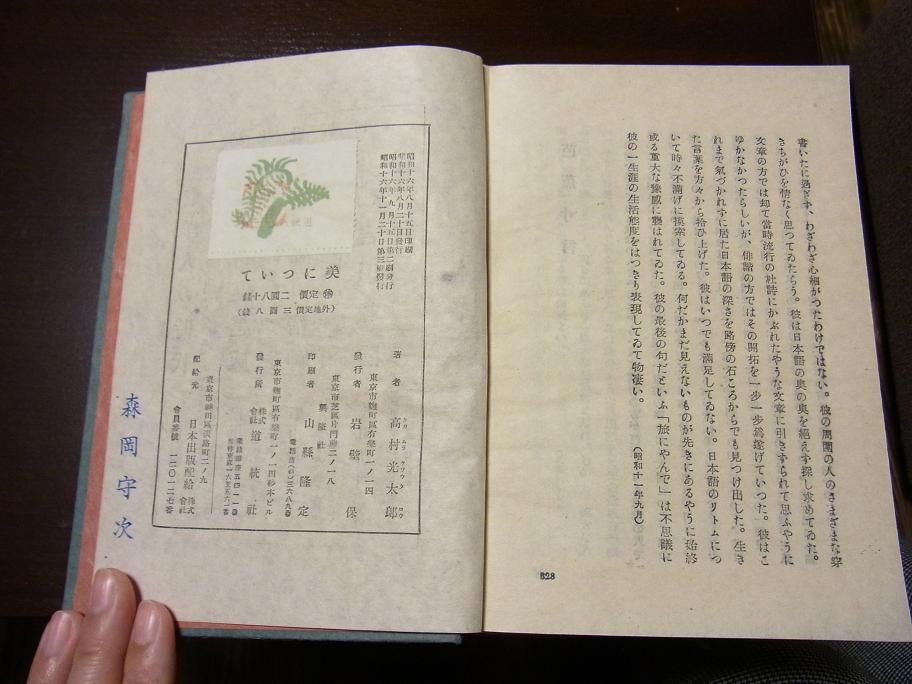 書いたに過ぎず、わざわざ心細がつたわけではない。彼の周圍の人のさまざまな穿
きちがひを情なく思つてゐたらう。彼は日本語の奥の奥を絶えず探し求めてゐた。
文章の方では却て當時流行の杜詩にかぶれたやうな文章に引きずられて思ふやうに
ゆかなかつたらしいが、俳諧の方ではその開拓を一歩一歩爲遂げていつた。彼はこ
れまで氣づかれずに居た日本語の深さを路傍の石ころからでも見つけ出した。生き
た言葉を方々から拾ひ上げた。彼はいつでも滿足してゐない。日本語のリトムにつ
いて時々不滿げに摸索してゐる。何だかまだ見えないものが先きにあるやうに始終
或る重大な豫感に襲はれてゐた。彼の最後の句だといふ「旅にやんで」は不思議に
彼の一生涯の生活態度をはつきり表現してゐて物凄い。
(昭和十一年九月)
328
昭和十六年八月十五日印刷
昭和十六年八月二十日發行
昭和十六年九月十五日第二刷發行
昭和十六年十一月二十日第三刷發行
美について
定價 二圓八十錢
(外地定價三圓八錢)
著者 高村光太郎
タカ ムラ クワウ タ ロウ
東京市麹町區有樂町一ノ一四
發行者 岩壁 保
東京市芝區片門前二ノ一八
興隆社
印刷者 山縣隆定
東京市麹町區有樂町一ノ一四
發行所 株式會社 道統社
東京市神田區淡路町二ノ九
配給元 日本出版配給株式會社
會員番號 一二〇一二七番
森岡守次